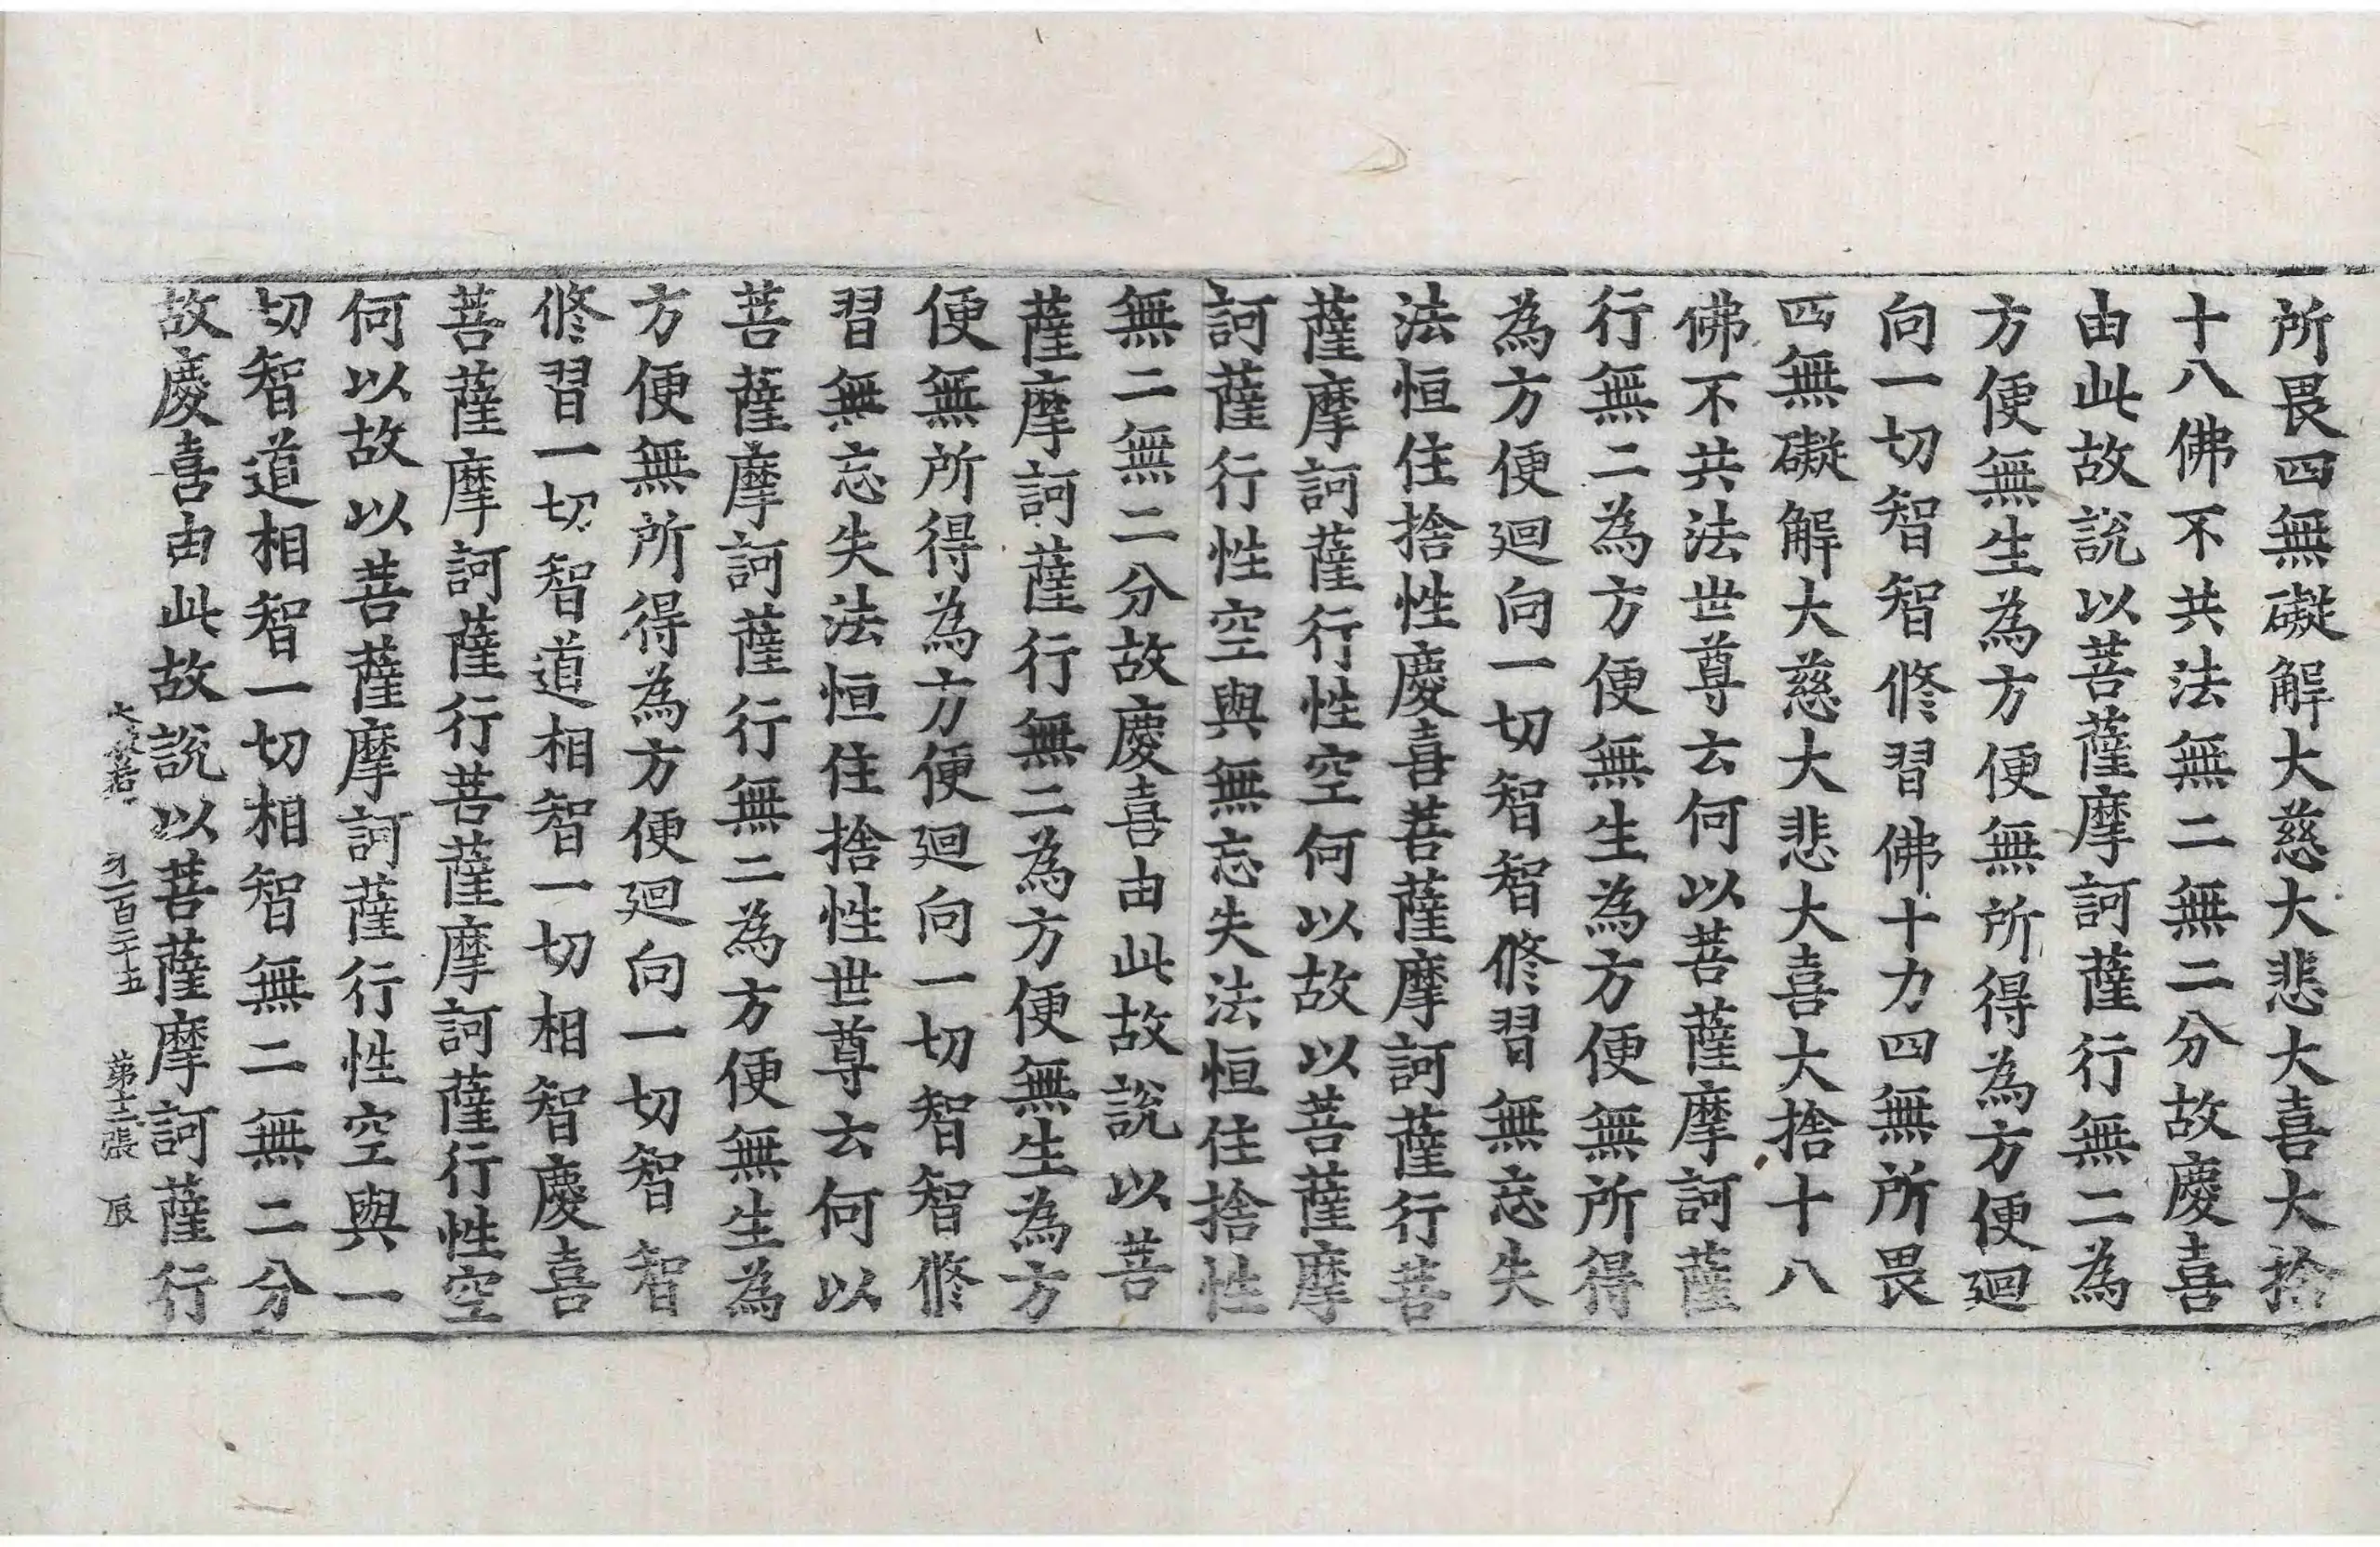 所畏四無礙解大慈大悲大喜大捨
十八佛不共法無二無二分故慶喜
由此故說以菩薩摩訶薩行無二為
方便無生為方便無所得為方便迴
向一切智智修習佛十力四無所畏
四無礙解大慈大悲大喜大捨十八
佛不共法世尊云何以菩薩摩訶薩
行無二為方便無生為方便無所得
為方便迴向一切智智修習無忘失
法恒住捨性慶喜菩薩摩訶薩行菩
薩摩訶薩行性空何以故以菩薩摩
訶薩行性空與無忘失法恒住捨性
無二無二分故慶喜由此故說以菩
薩摩訶薩行無二為方便無生為方
便無所得為方便迴向一切智智修
習無忘失法恒住捨性世尊云何以
菩薩摩訶薩行無二為方便無生為
方便無所得為方便迴向一切智智
修習一切智道相智一切相智慶喜
菩薩摩訶薩行菩薩摩訶薩行性空
何以故以菩薩摩訶薩行性空與一
切智道相智一切相智無二無二分
故慶喜由此故說以菩薩摩訶薩行
大般若 一百二十五 第十二張 辰